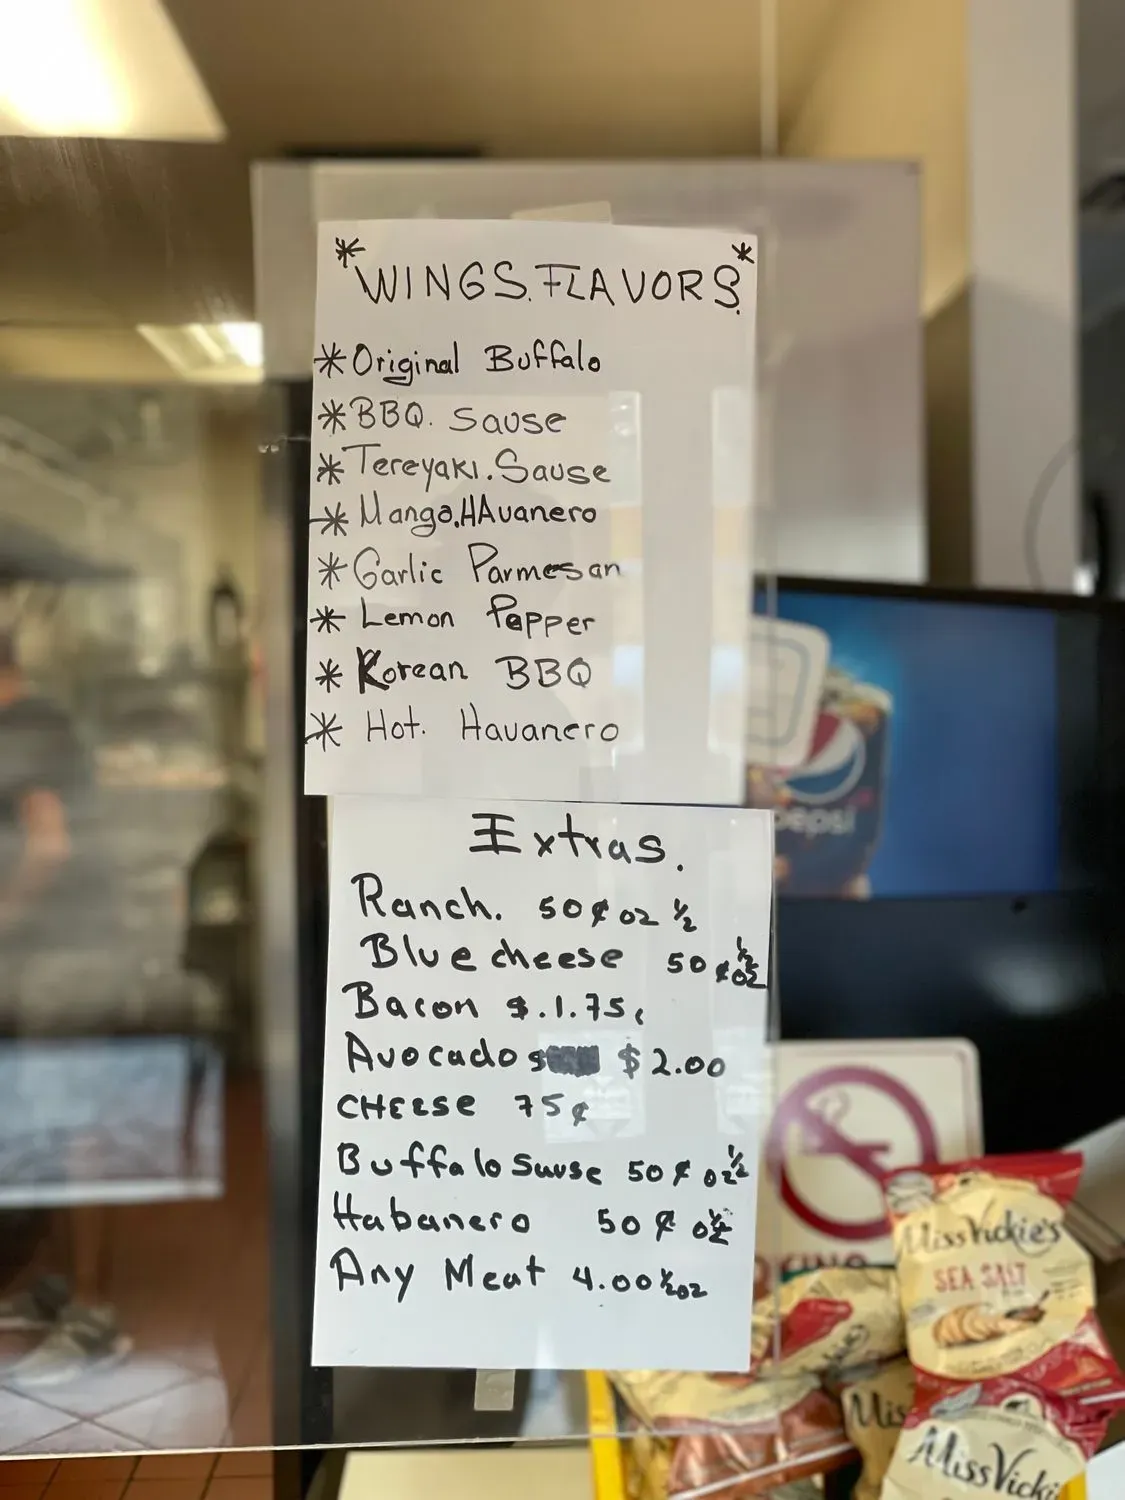 * WINGS. FLAVORS. *
* Original Buffalo
* BBQ. Sause
* Tereyaki. Sause
* Mango. HAvanero
* Garlic Parmesan
* Lemon Pepper
* Korean BBQ
* Hot. Havanero
Extras.
Ranch. 50¢ oz ½
Blue cheese 50¢ ½ oz
Bacon $.1.75¢
Avocados $2.00
CHEESE 75¢
Buffalo Sause 50¢ oz ½
Habanero 50¢ oz ½
Any Meat 4.00 ½ oz
pepsi
Miss Vickie's
SEA SALT
Miss Vicki